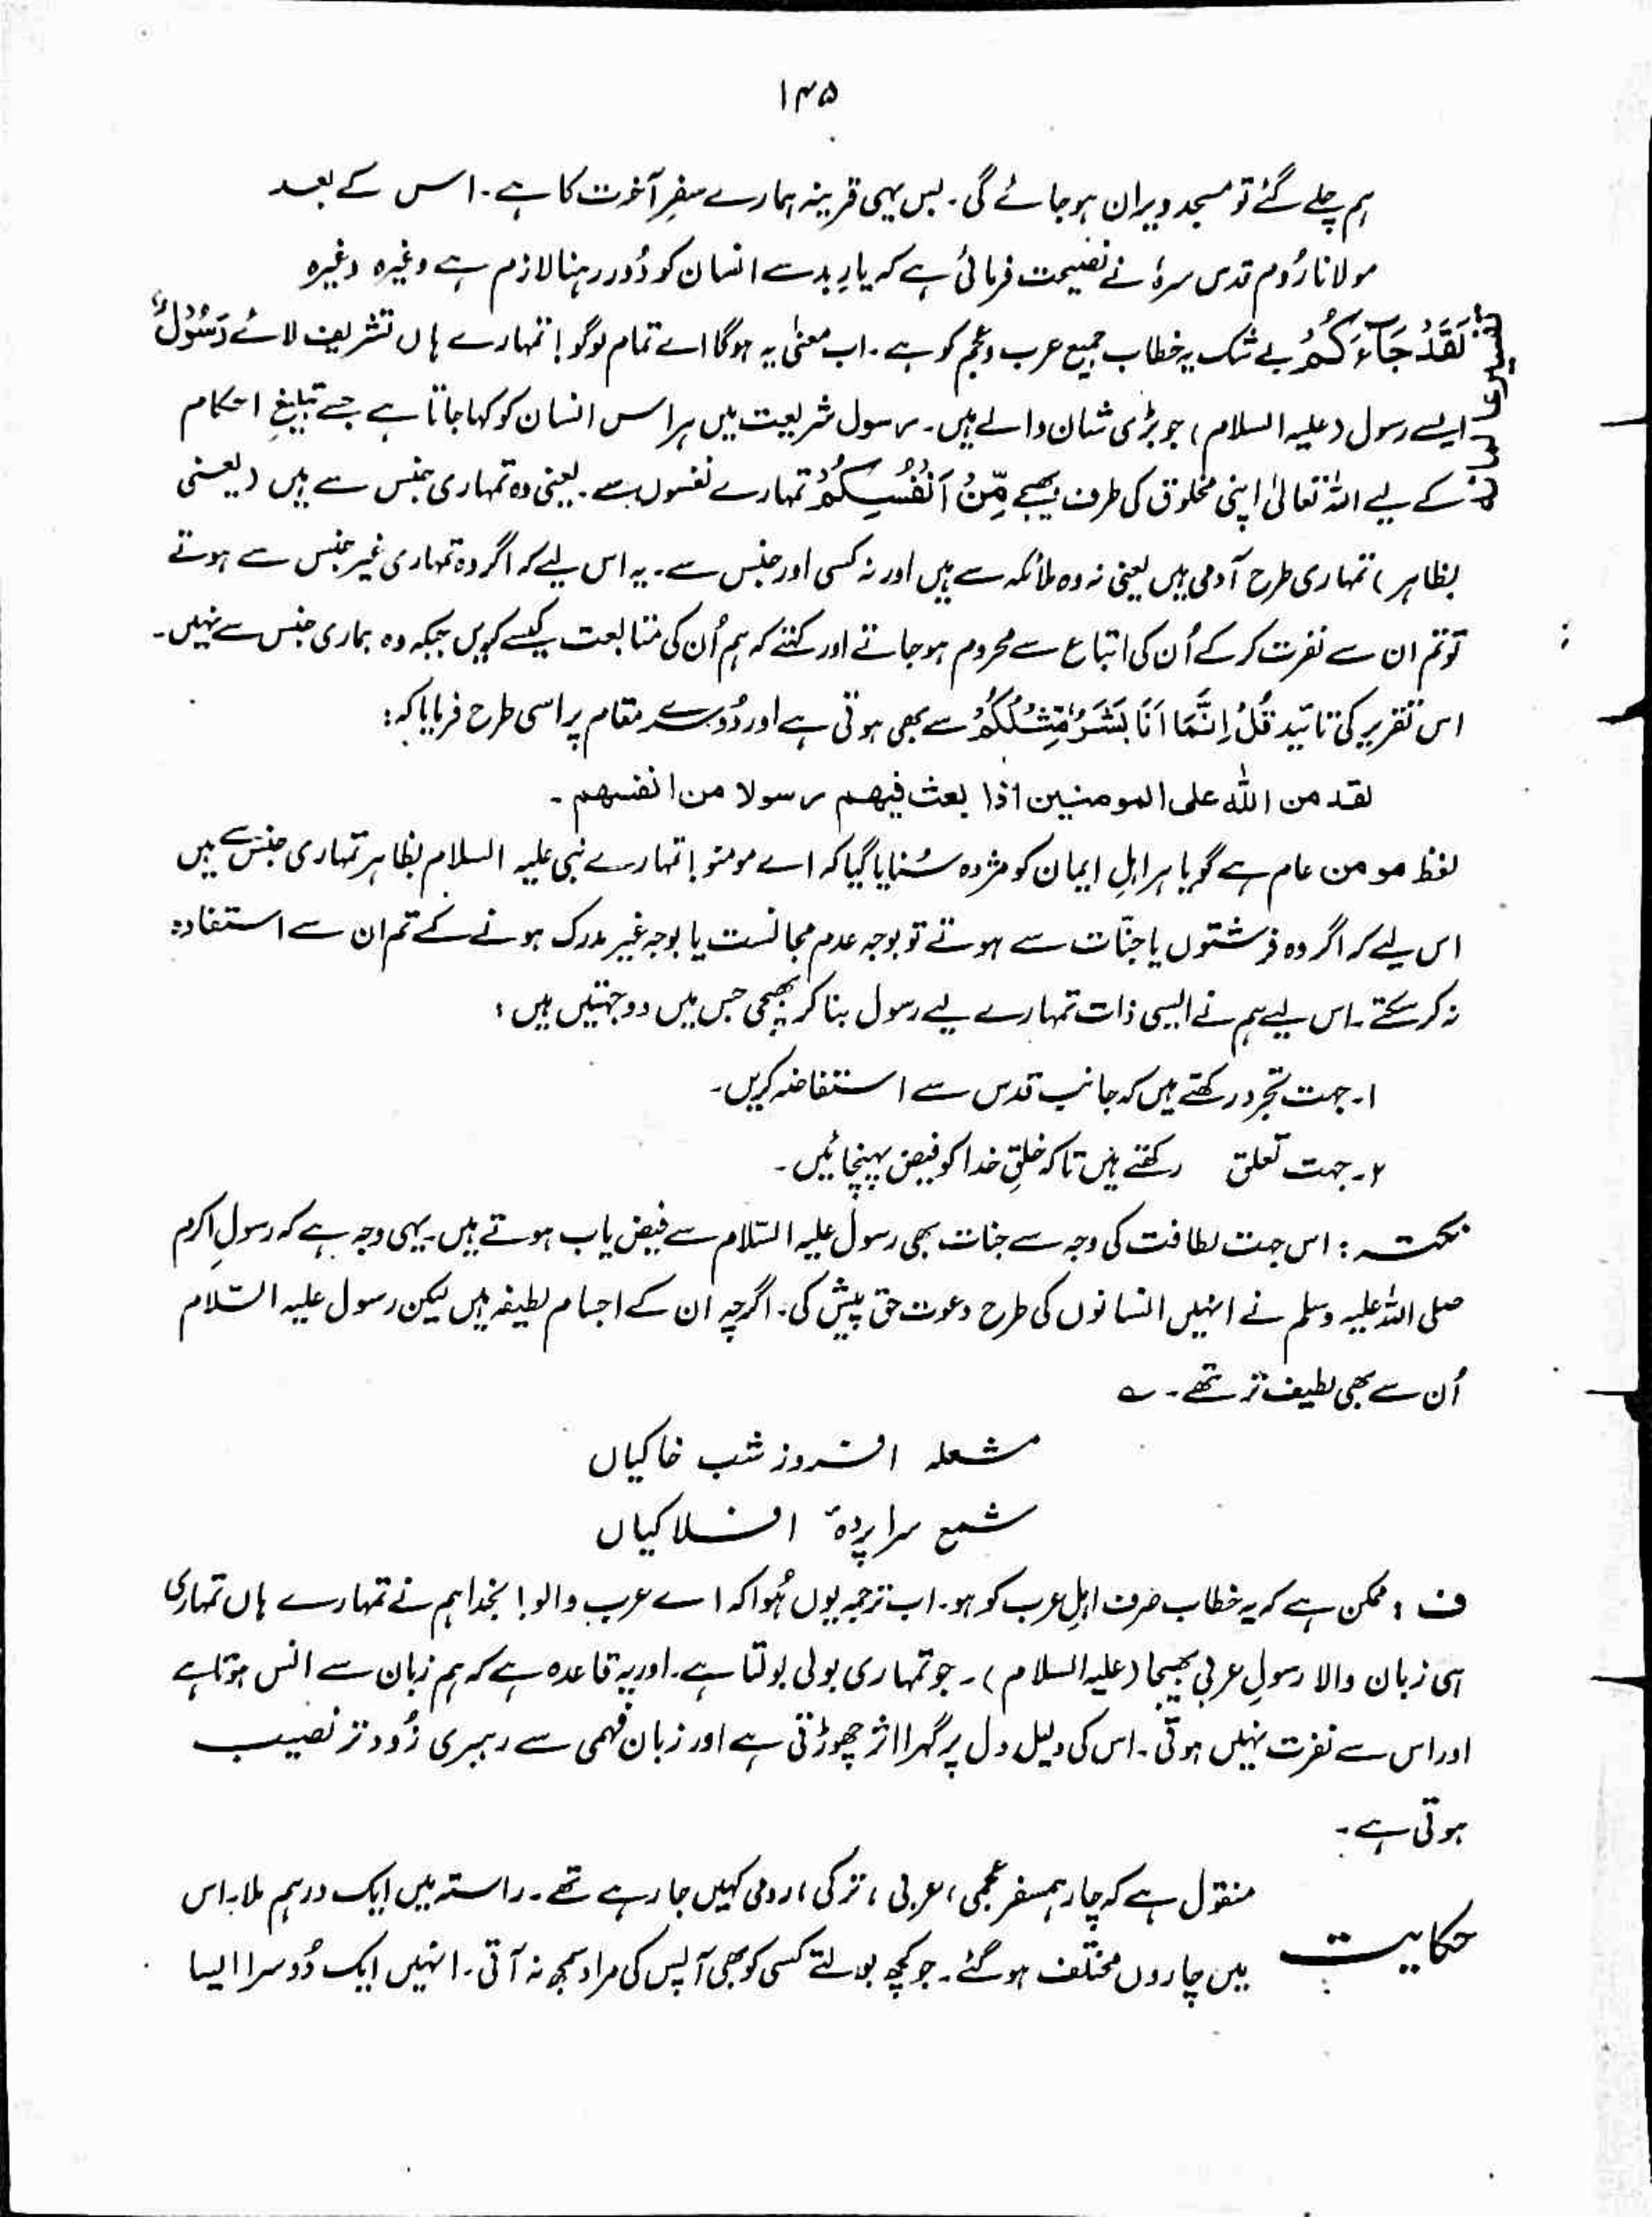 ۱۴۵
ہم چلے گئے تو مسجد ویران ہو جائے گی۔ بس یہی قرینہ ہمارے سفرِ آخرت کا ہے۔ اس کے بعد
مولانا رُوم قدس سرہٗ نے نصیحت فرمائی ہے کہ یارِ بد سے انسان کو دُور رہنا لازم ہے وغیرہ وغیرہ
تفسیر عالمانہ
لَقَدْ جَآءَکُمْ بے شک یہ خطاب جمیع عرب و عجم کو ہے۔ اب معنٰی یہ ہوگا اے تمام لوگو! تمہارے ہاں تشریف لائے رَسُوْلٌ
ایسے رسول (علیہ السلام) جو بڑی شان والے ہیں۔ رسول شریعت میں ہر اس انسان کو کہا جاتا ہے جسے تبلیغِ احکام
کے لیے اللہ تعالیٰ اپنی مخلوق کی طرف بھیجے مِّنْ اَنْفُسِکُمْ تمہارے نفسوں سے۔ یعنی وہ تمہاری جنس سے ہیں (یعنی
بظاہر) تمہاری طرح آدمی ہیں یعنی نہ وہ ملائکہ سے ہیں اور نہ کسی اور جنس سے۔ یہ اس لیے کہ اگر وہ تمہاری غیر جنس سے ہوتے
تو تم ان سے نفرت کر کے اُن کی اتباع سے محروم ہو جاتے اور کہتے کہ ہم اُن کی متابعت کیسے کریں جبکہ وہ ہماری جنس سے نہیں۔
اس تقریر کی تائید قُلْ اِنَّمَا اَنَا بَشَرٌ مِّثْلُکُمْ سے بھی ہوتی ہے اور دُوسرے مقام پر اسی طرح فرمایا کہ:
لقد من اللہ علی المومنین اذا بعث فیھم رسولا من انفسھم۔
لفظ مومن عام ہے گویا ہر اہلِ ایمان کو مژدہ سُنایا گیا کہ اے مومنو! تمہارے نبی علیہ السلام بظاہر تمہاری جنس سے ہیں
اس لیے کہ اگر وہ فرشتوں یا جنّات سے ہوتے تو بوجہ عدم مجانست یا بوجہ غیر مدرک ہونے کے تم ان سے استفادہ
نہ کر سکتے۔ اس لیے ہم نے ایسی ذات تمہارے لیے رسول بنا کر بھیجی جس میں دو جہتیں ہیں:
۱۔ جہت تجرد رکھتے ہیں کہ جانب قدس سے استفاضہ کریں۔
۲۔ جہت تعلق رکھتے ہیں تاکہ خلقِ خدا کو فیض پہنچائیں۔
نکتہ: اس جہت لطافت کی وجہ سے جنات بھی رسول علیہ السّلام سے فیض یاب ہوتے ہیں۔ یہی وجہ ہے کہ رسولِ اکرم
صلی اللہ علیہ وسلم نے انہیں انسانوں کی طرح دعوت حق پیش کی۔ اگرچہ ان کے اجسام لطیفہ ہیں لیکن رسول علیہ السّلام
اُن سے بھی لطیف تر تھے۔ ؎
مشعلہ افروز شب خاکیاں
شمع سراپردۂ افلاکیاں
ف : ممکن ہے کہ یہ خطاب صرف اہلِ عرب کو ہو۔ اب ترجمہ یوں ہُوا کہ اے عرب والو! بخدا ہم نے تمہارے ہاں تمہاری
ہی زبان والا رسولِ عربی بھیجا (علیہ السلام)۔ جو تمہاری بولی بولتا ہے۔ اور یہ قاعدہ ہے کہ ہم زبان سے انس ہوتا ہے
اور اس سے نفرت نہیں ہوتی۔ اس کی دلیل دل پر گہرا اثر چھوڑتی ہے اور زبان فہمی سے رہبری زُود تر نصیب
ہوتی ہے۔
حکایت
منقول ہے کہ چار ہمسفر عجمی، عربی، ترکی، رومی کہیں جا رہے تھے۔ راستہ میں ایک درہم ملا۔ اس
میں چاروں مختلف ہو گئے۔ جو کچھ بولتے کسی کو بھی آپس کی مراد سمجھ نہ آتی۔ انہیں ایک دُوسرا ایسا